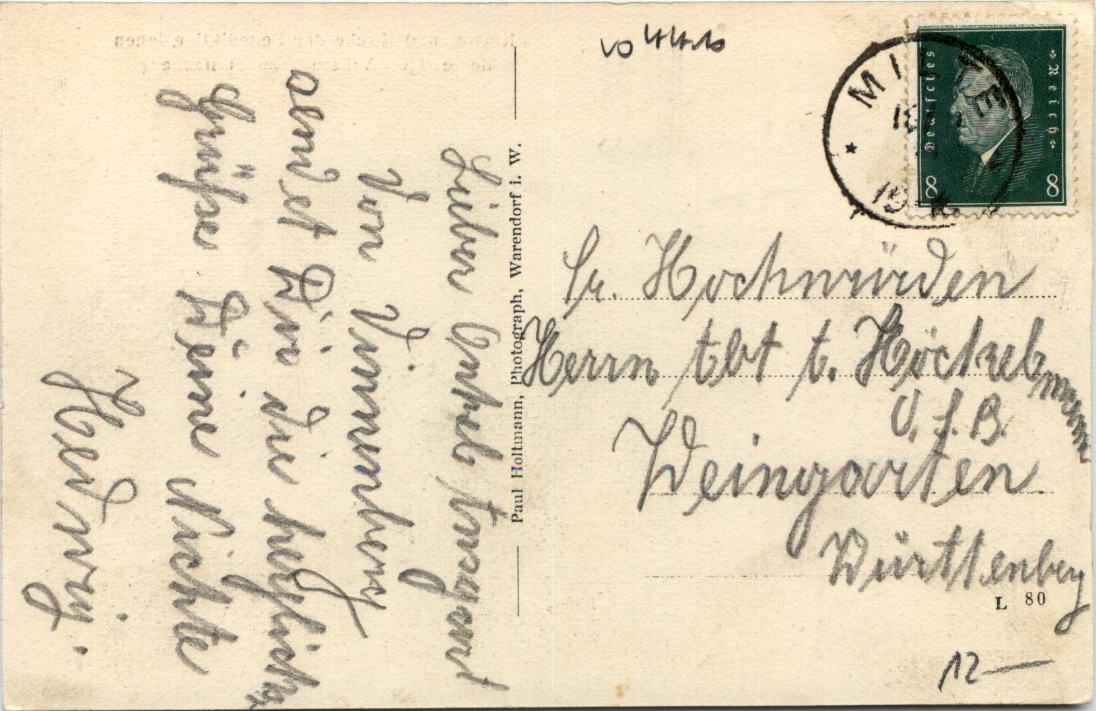 Lieber Onkel
Von Vinnenberg
sendet Dir die herzlichsten
Grüße Deine Nichte
Hedwig.
Paul Holtmann, Photograph, Warendorf i. W.
MILTE
Deutsches Reich
8 8
Sr. Hochwürden
Herrn Abt P. Höckelmann
O. S. B.
Weingarten
Württenberg
L 80
12—